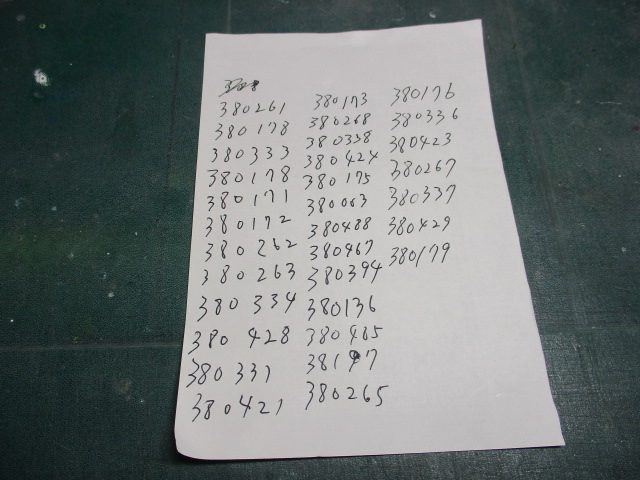 380261
380178
380333
380178
380171
380172
380262
380263
380334
380428
380331
380421
380173
380268
380338
380424
380175
380003
380488
380467
380394
380136
380485
380265
380176
380336
380423
380267
380337
380429
380179